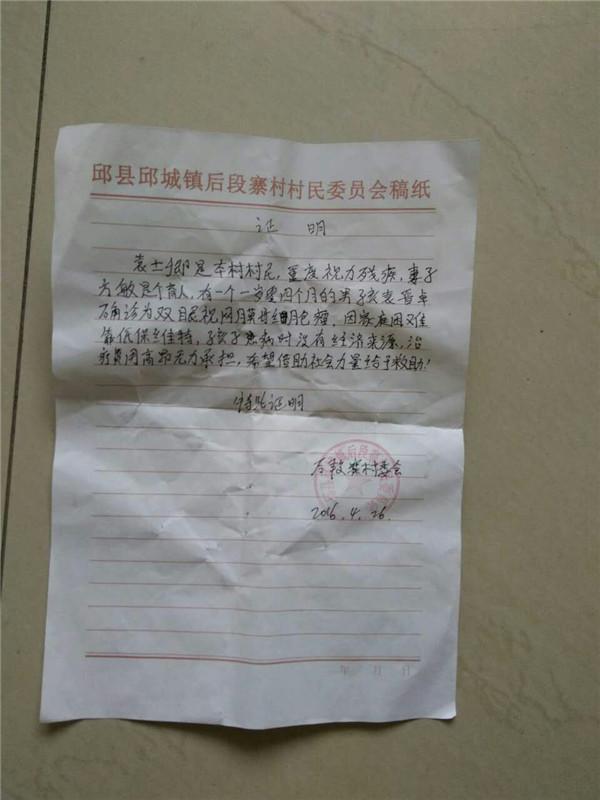 邱县邱城镇后段寨村村民委员会稿纸
证 明
袁士卿是本村村民,重度视力残疾,妻子
方敏是个盲人,有一个一岁零四个月的男孩袁晋卓
确诊为双目民视网月莫母细月包瘤,因家庭困又佳
靠低保维特,孩子患病时没有经济来源,治
疗费用高昂无力承担,希望借助社会力量给予救助!
特此证明
后段寨村委会
2016.4.26.
年 月 日